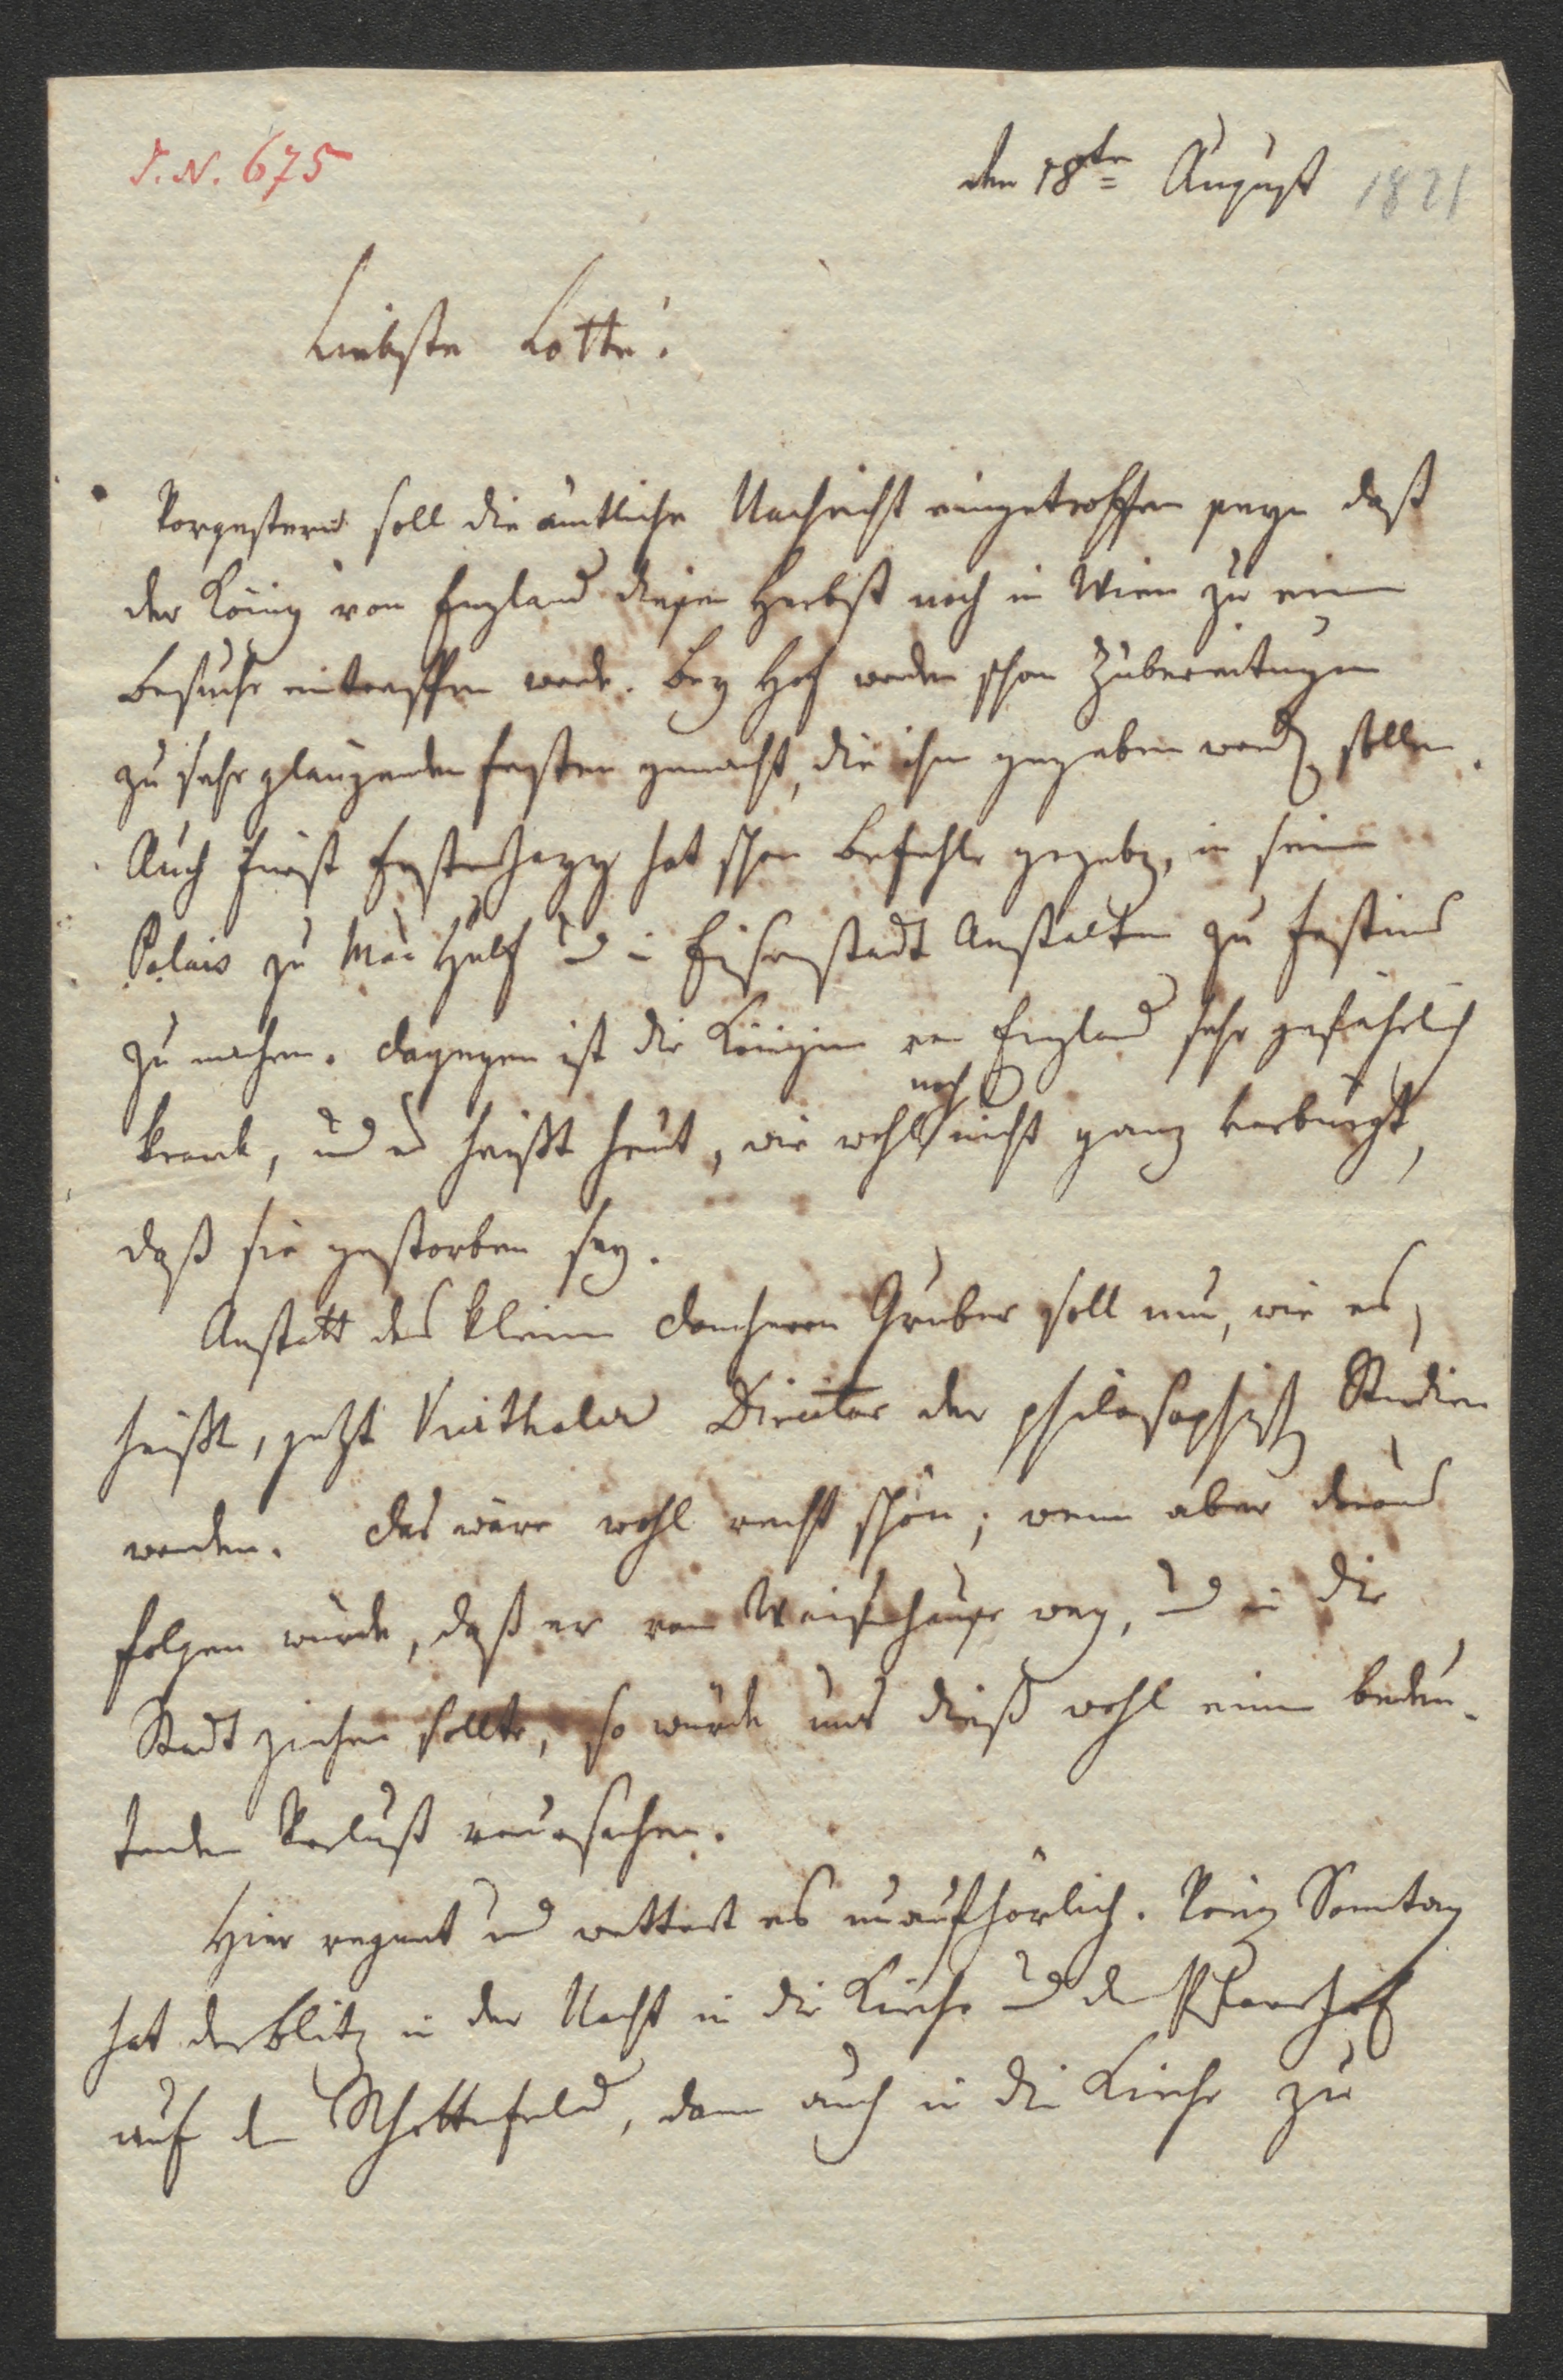 I. N. 675
den 18ten August 1821
Liebste Lotte!
Vorgestern soll die ämtliche Nachricht eingetroffen seyn daß
der König von England diesen Herbst noch in Wien zu einem
Besuche eintreffen werde. Bey Hof werden schon Zubereitungen
zu sehr glänzenden Festen gemacht, die ihm gegeben werden sollen.
Auch Fürst Esterhazy hat schon Befehle gegeben, in seinem
Palais zu Mariahülf und in Eisenstadt Anstalten zu Festins
zu machen. Dagegen ist die Königin von England sehr gefährlich
krank, und es heißt heut, wie wohl noch nicht ganz verbürgt,
daß sie gestorben sey.
Anstatt des kleinen Domherrn Gruber soll nun, wie es
heißt, jetzt Vierthaler Director der philosophischen Studien
werden. Das wäre wohl recht schön; wenn aber daraus
folgen würde, daß er vom Waisenhause weg, und in die
Stadt ziehen sollte, so würde uns dieß wohl einen bedeu-
tenden Verlust verursachen.
Hier regnet und wettert es unaufhörlich. Vorig Sonntag
hat der Blitz in der Nacht in die Kirche und den Pfarrhof
auf dem Schottenfeld, dann auch in die Kirche zu